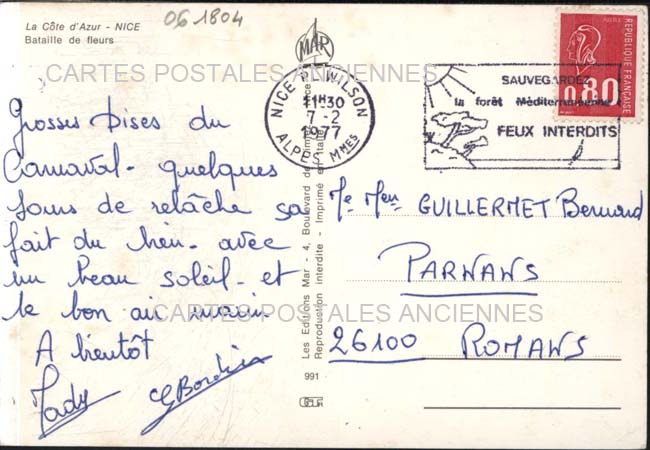 06 1804
La Côte d'Azur - NICE
Bataille de fleurs
MAR
CARTES POSTALES ANCIENNES
NICE Pl. WILSON
11H30
7-2
1977
ALPES Mmes
SAUVEGARDEZ
la forêt Méditerranéenne
FEUX INTERDITS
0,80
REPUBLIQUE FRANÇAISE
Grosses bises du
Carnaval - quelques
jours de relâche ça
fait du bien - avec
un beau soleil - et
le bon air marin.
A bientôt
Mady
GBordier
Les Editions Mar - 4, Boulevard de
Reproduction interdite - Imprimé en Italie
991
Me Men GUILLERMET Bernard
PARNANS
26100 ROMANS
CARTES POSTALES ANCIENNES